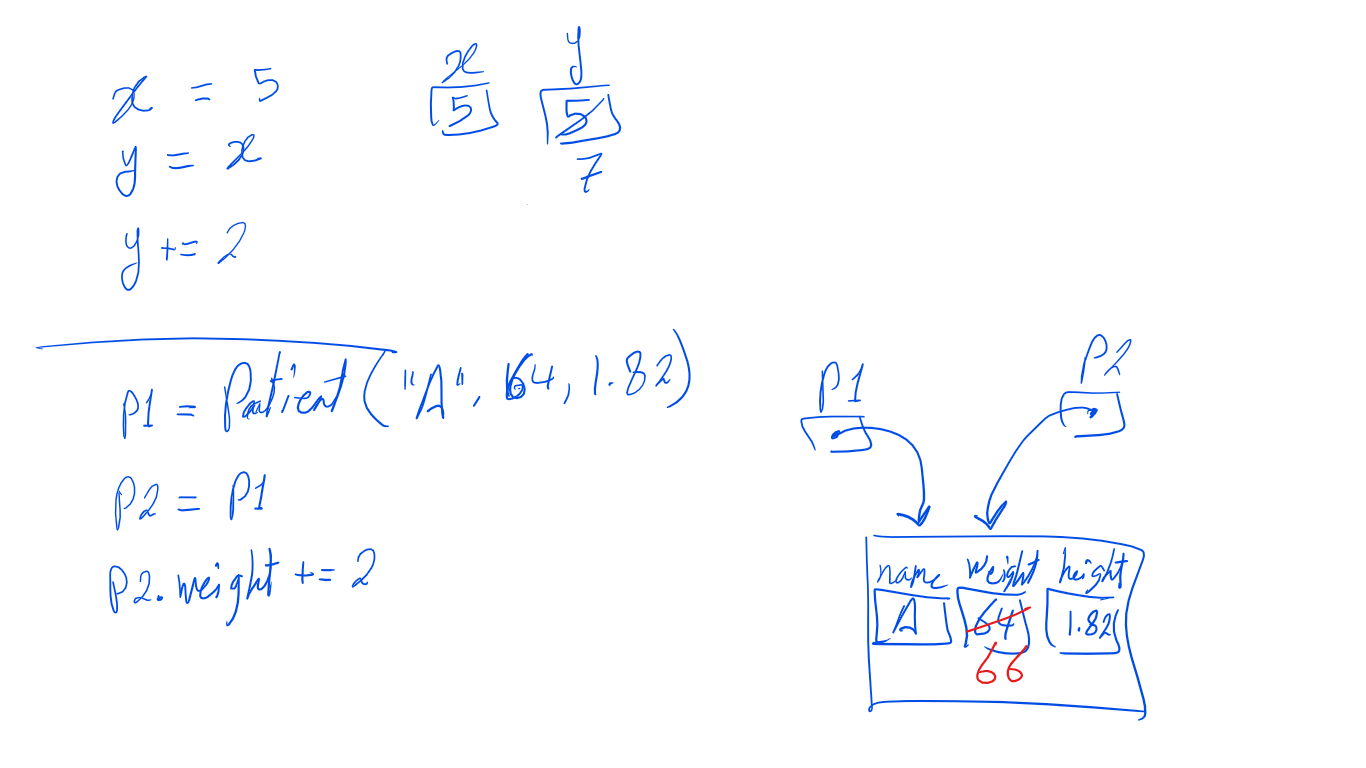 x = 5
y = x
y += 2
x y
5 5
7
P1 = Patient ("A", 64, 1.82)
P2 = P1
P2.weight += 2
P1 P2
name weight height
A 64 1.82
66